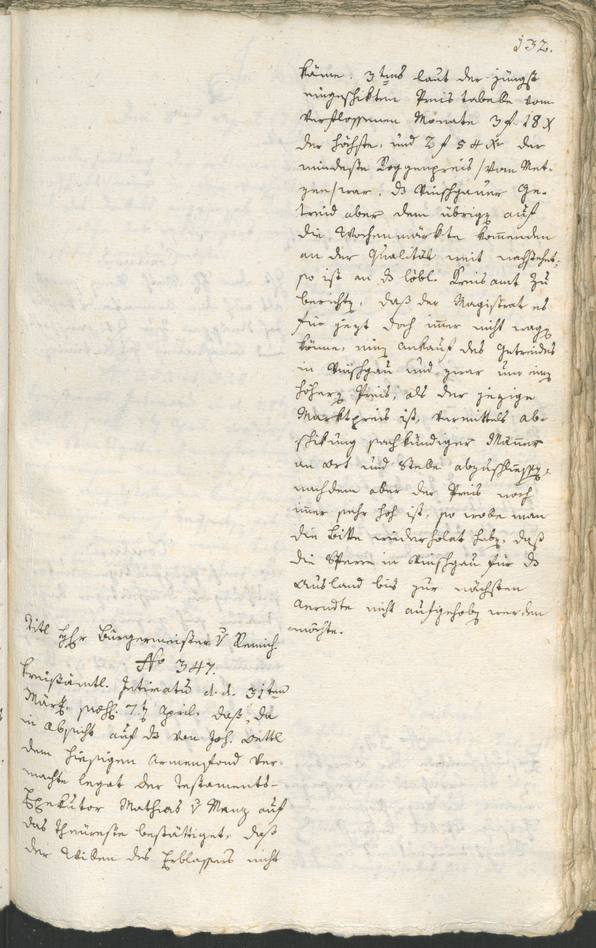 132.
käme. 3tens laut der jüngst
eingeschikten Preis tabelle vom
verflossenen Monate 3 f 18 X
der höchste, und 2 f 54 Xr der
mindeste Roggenpreis /: vom Met-
zen :/ war, ds Vinschgauer Ge-
treid aber dem übrigen auf
die Wochenmärkte kommenden
an der Qualität weit nachstehet,
so ist an ds löbl. Kreisamt zu
berichten, daß der Magistrat es
für jezt doch immer nicht wagen
könne, einen Ankauf des Getreides
in Vinschgau und zwar um einen
höhern Preis, als der jezige
Marktpreis ist, vermittels ab-
schikung sachkundiger Männer
an Ort und Stelle abzuschliessen,
nachdem aber der Preis noch
immer sehr hoch ist, so wolle man
die Bitte wiederholet haben, daß
die Sperre in Vinschgau für ds
Ausland bis zur nächsten
Aerndte nicht aufgehoben werden
möchte.
Titl Hr Bürgermeister v
No 347.
Kreisämtl. Intimatum d. d. 31ten
März, 7ten April, daß, da
in Absicht auf ds von Joh. Oettl
dem hiesigen Armenfond ver-
machte Legat der Testaments-
Exekutor Mathias v Menz auf
das theüreste bestättiget, daß
der Willen des Erblassers nicht